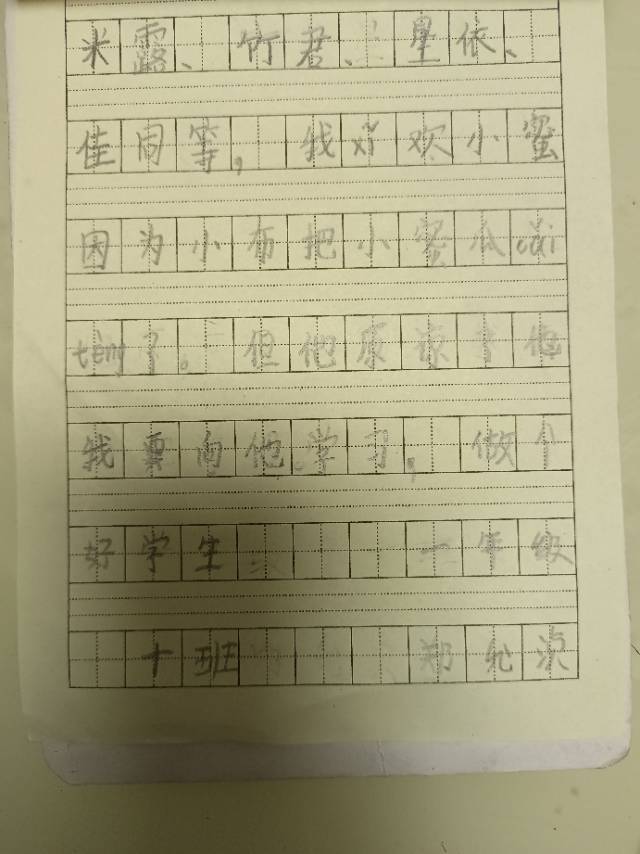 米露、竹君、星依、
佳同等，我好欢小蜜
因为小布把小蜜瓜cǎi
téng了。但他原谅了他
我要向他学习，做个
好学生
一年级
十班 郑允